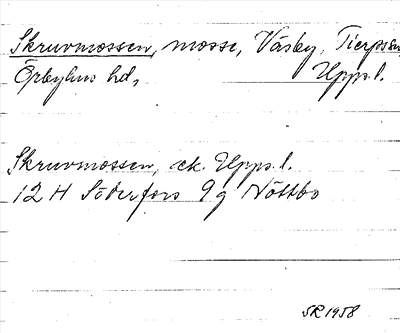 Skruvmossen, mosse, Väsby, Tierps sn,
Örbyhus hd, Upps.l.
Skruvmossen, ek. Upps.l.
12 H Söderfors 9g Nöttbo
SR 1958